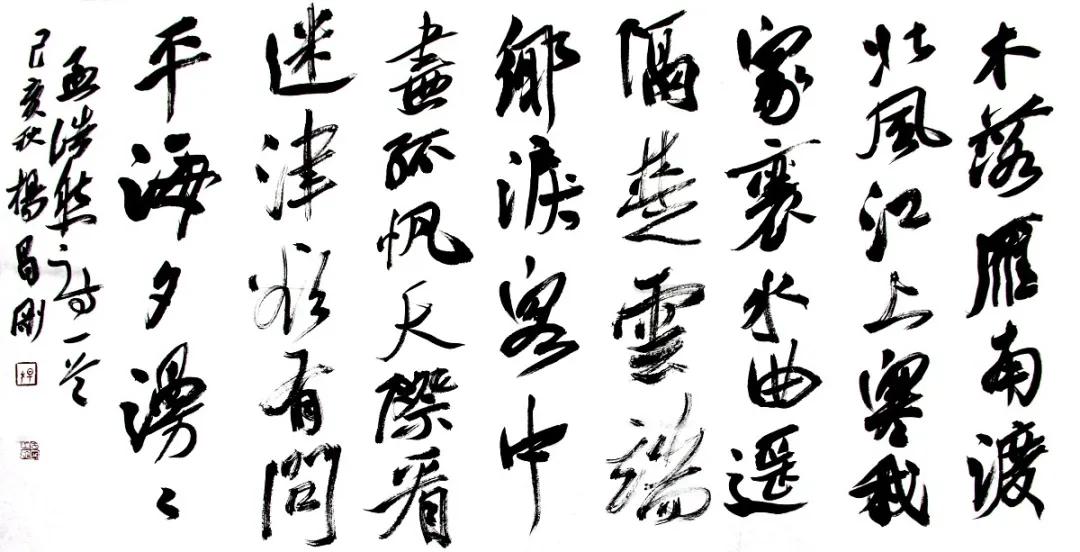 木落雁南渡
北風江上寒我
家襄水曲遥
隔楚雲端
鄉淚客中
盡孤帆天際看
迷津欲有問
平海夕漫〻
孟浩然之詩一首
己亥秋楊昌剛